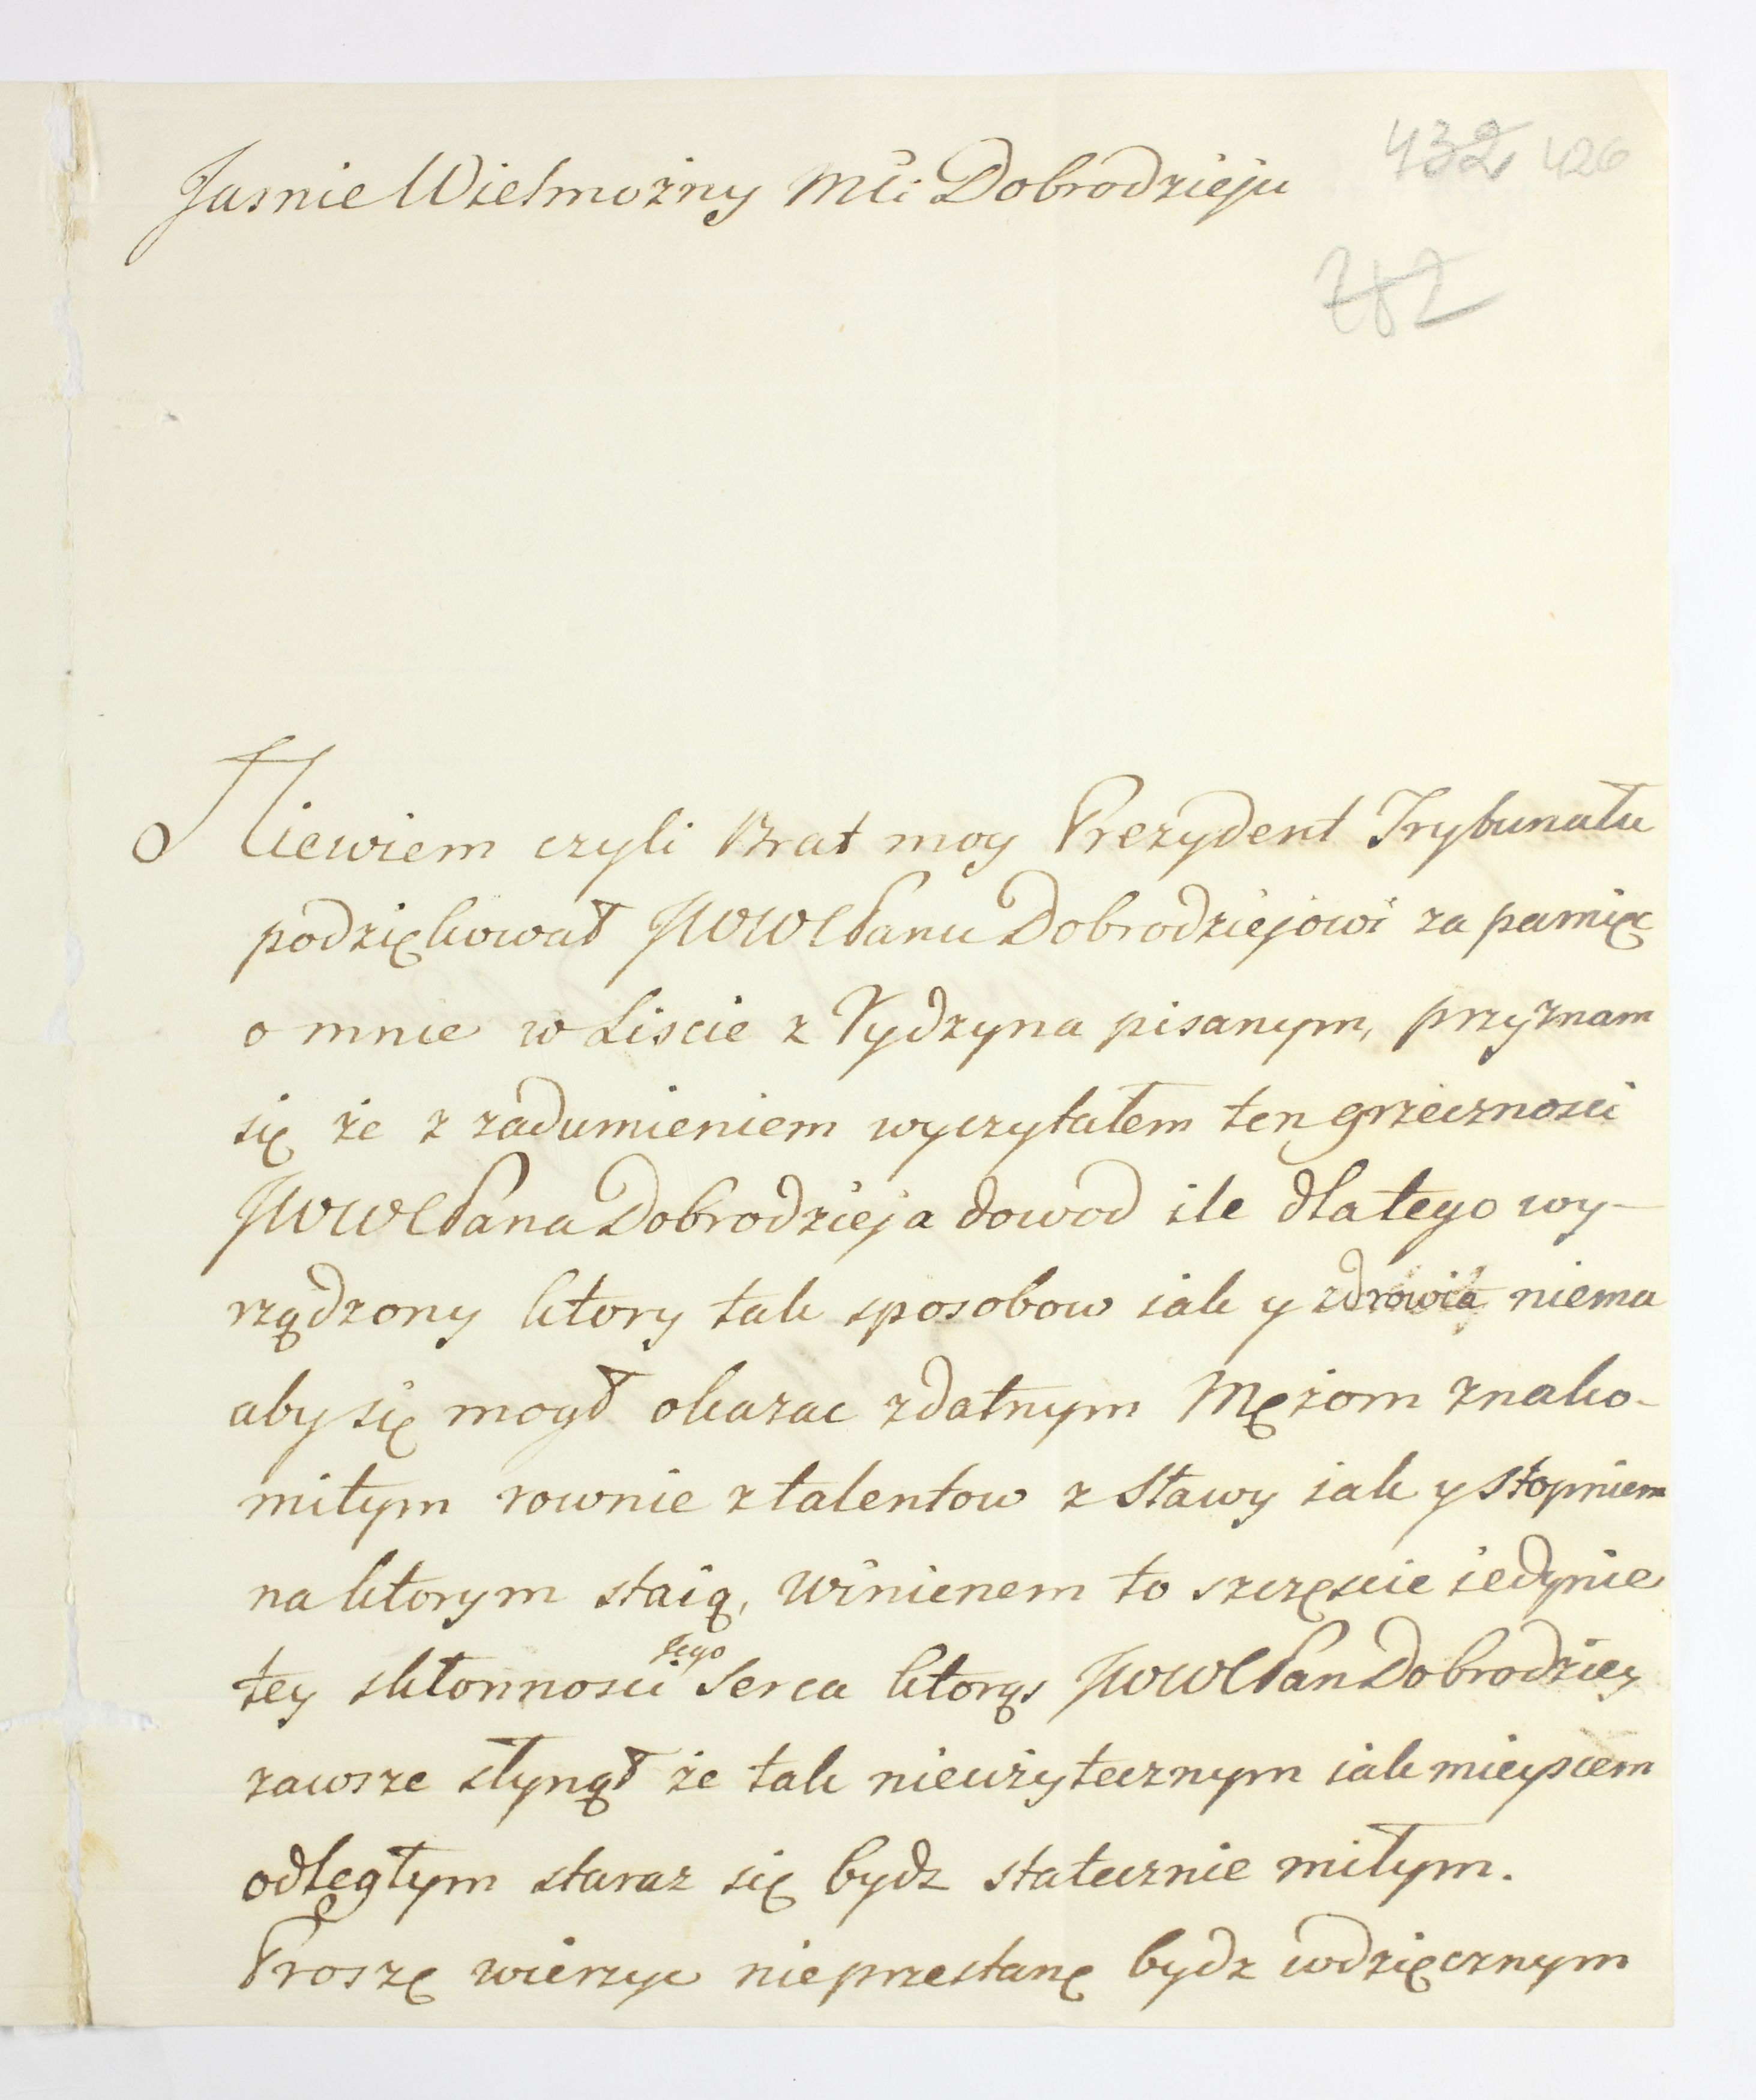 432 426
Jasnie Wielmożny Mći Dobrodzieju
Niewiem czyli Brat moy Prezydent Trybunału
podziękował JWWCPanu Dobrodziejowi za pamięc
o mnie w Liscie z Rydzyna pisanym, przyznam
się że z zadumieniem wyczytałem ten grzecznosci
JWWCPana Dobrodzieja dowod ile dlatego wy-
rządzony ktory tak sposobow iak y zdrowia niema
aby się mogł okazac zdatnym Mężom znako-
mitym rownie z talentow z Sławy iak y Stopniem
na ktorym staią, winienem to szczęscie iedynie
tey skłonnosci Jego Serca ktorąs JWWCPan Dobrodziey
zawsze słynął że tak nieużytecznym iak mieyscem
odległym staraz się bydz statecznie miłym.
Proszę wierzyc nieprzestanę bydz wdzięcznym